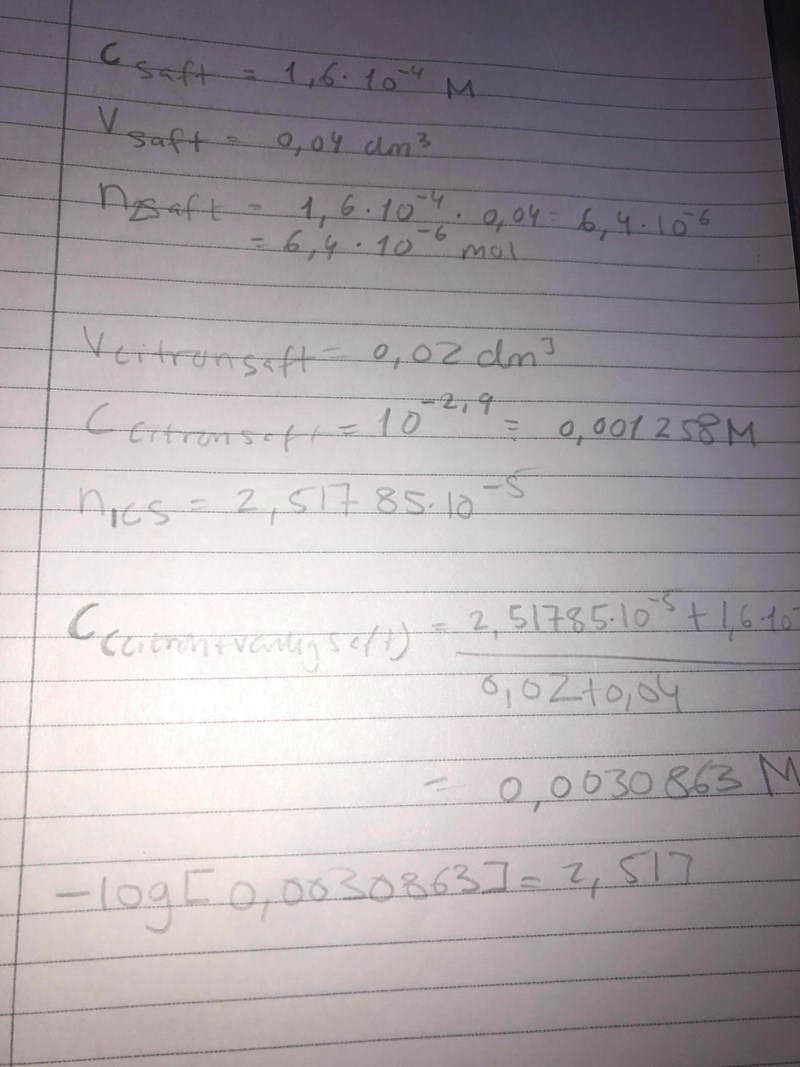 C saft = 1,6·10⁻⁴ M
V saft = 0,04 dm³
n₂saft = 1,6·10⁻⁴· 0,04 = 6,4·10⁻⁶
= 6,4·10⁻⁶ mol
V citronsaft = 0,02 dm³
C citronsaft = 10⁻²,⁹ = 0,001258M
n₁cs = 2,51785·10⁻⁵
C(citron+vanlig saft) = 2,51785·10⁻⁵ + 1,6·10⁻
0,02+0,04
= 0,0030863 M
-log[0,0030863] = 2,517